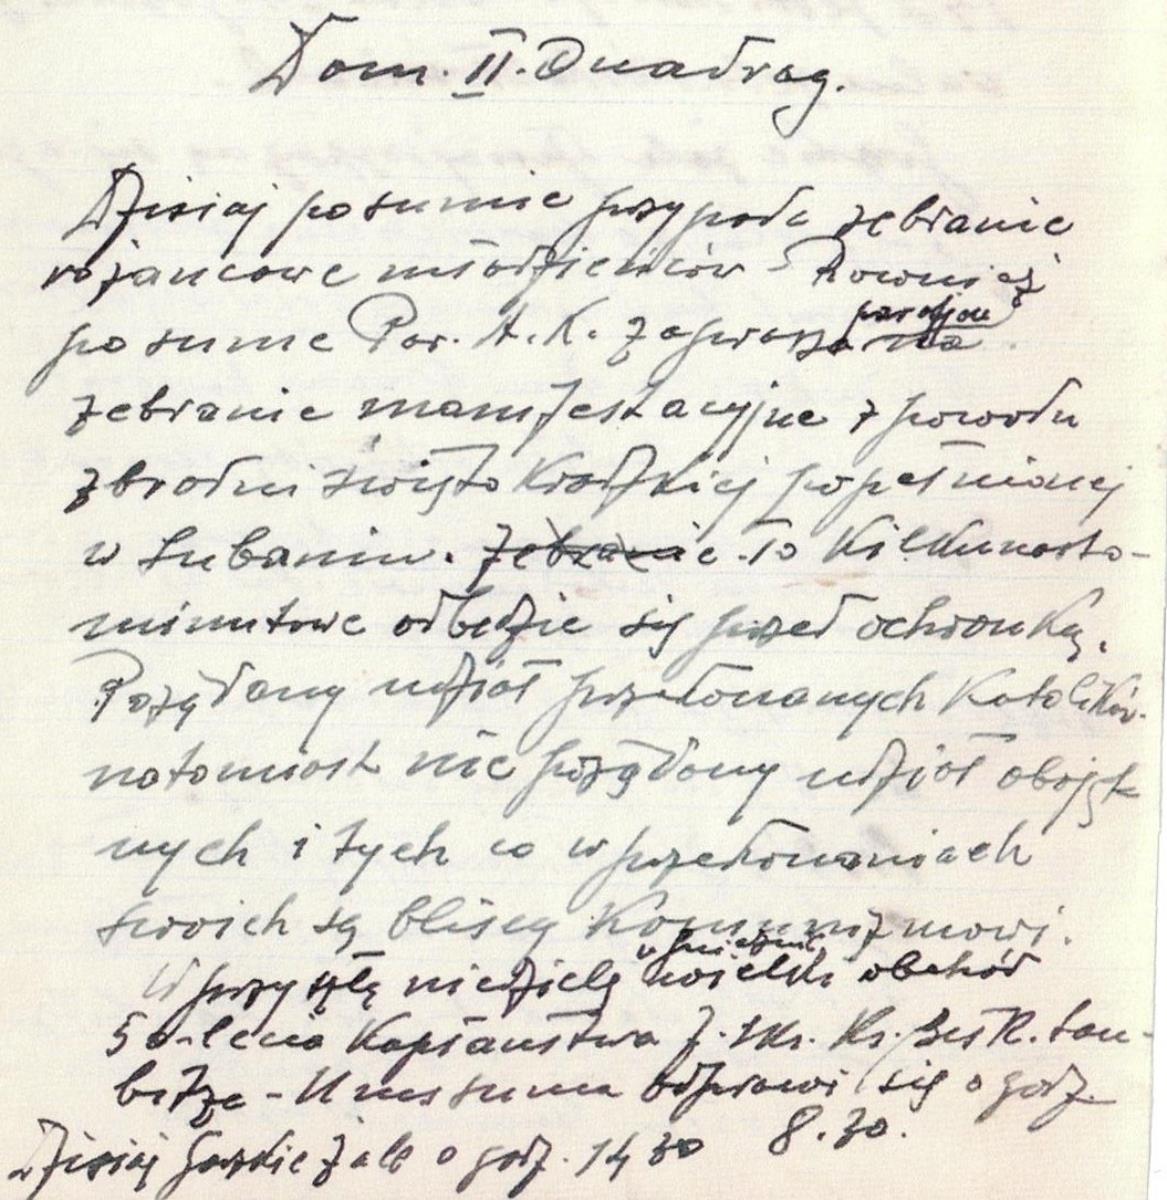 Dom. II. Quadrag.
Dzisiaj po sumie przypada zebranie
różańcowe młodzieńców - Rownież
po sumie Par. A. K. zaprasza parafjan na
zebranie manifestacyjne z powodu
zbrodni świętokradzkiej popełnionej
w Luboniu. Zebranie To kilkunasto-
minutowe odbędzie się przed ochronką.
Pożądany udział przekonanych Katolików.
natomiast nie pożądany udział obojęt
nych i tych co w przekonaniach
swoich są bliscy Komunizmowi.
W przyszłą niedzielę w Gnieźnie wielki obchód
50-lecia Kapłaństwa J. Eks. Ks. Bisk. Lau-
bitza - U nas suma odprawi się o godz.
8.30.
Dzisiaj Gorzkie Żale o godz. 14 30